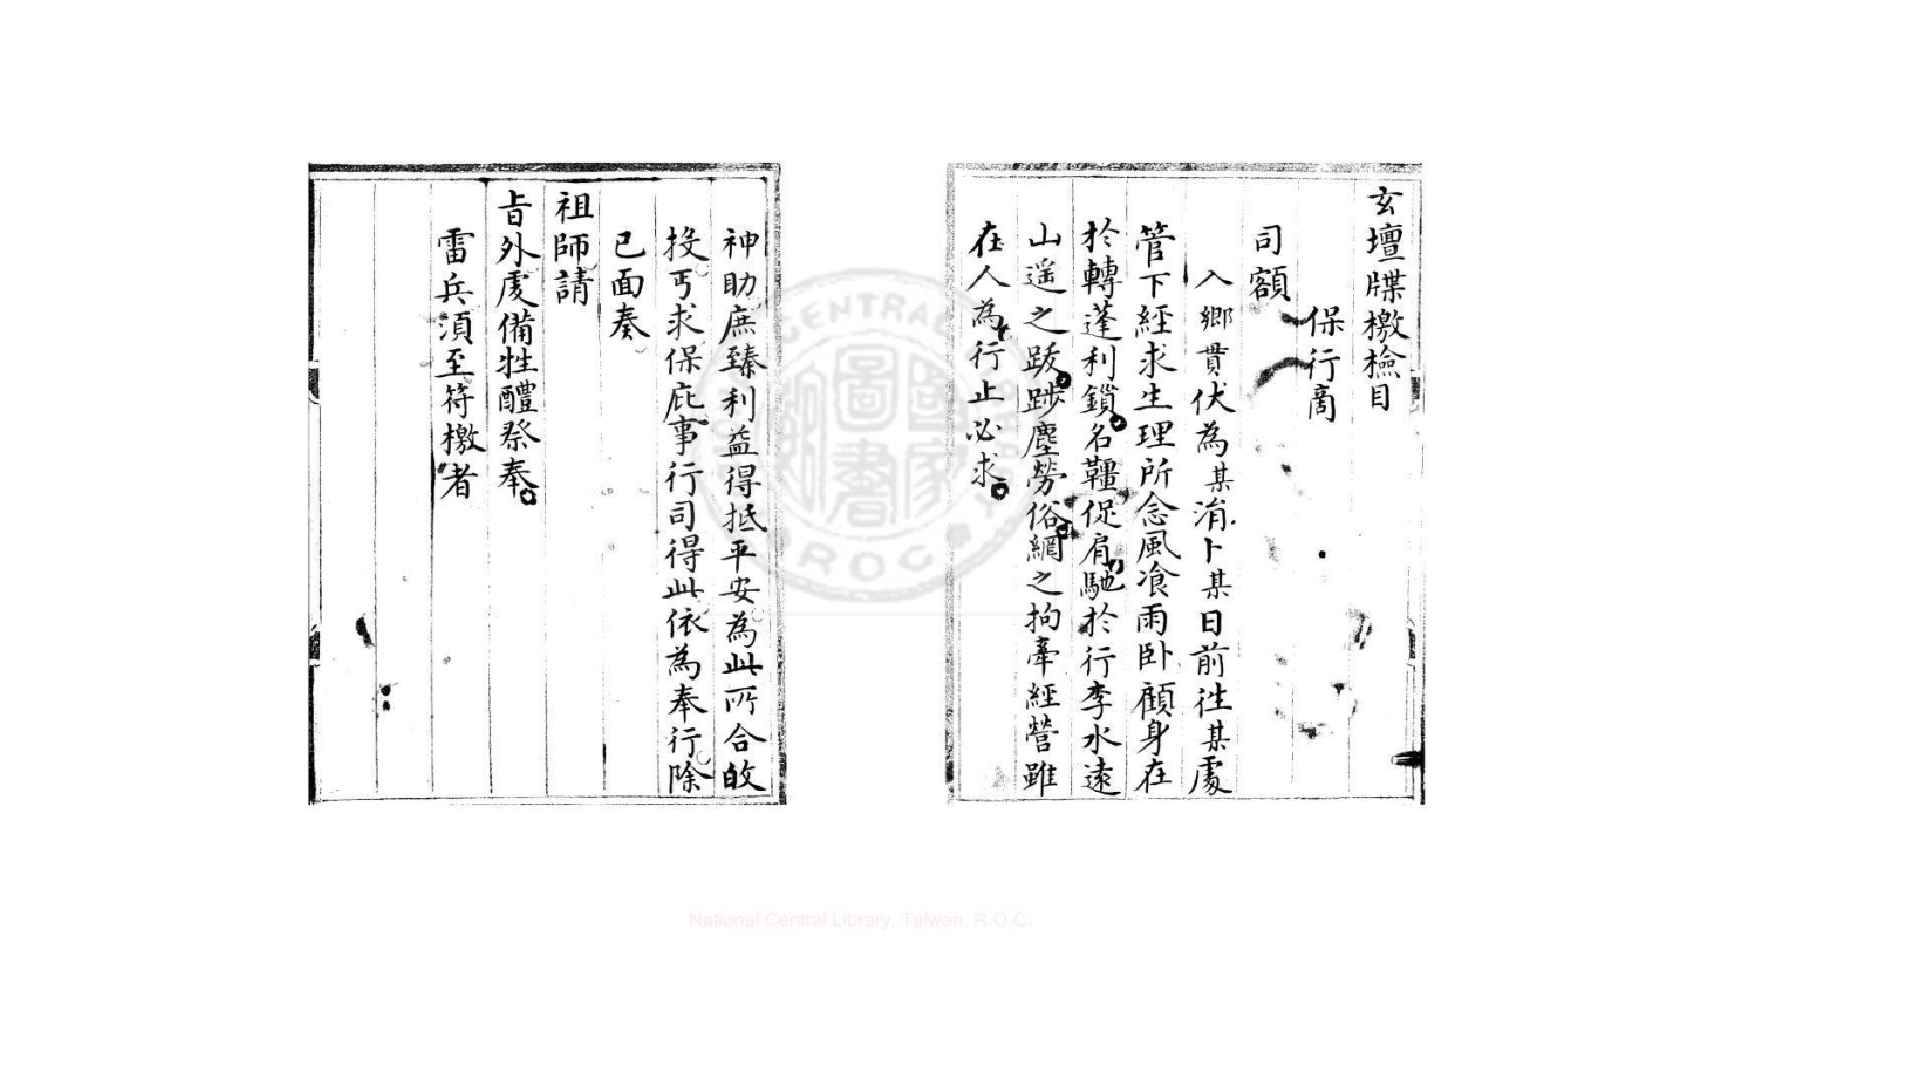 玄壇牒檄檢目
保行商
司額
入鄉貫伏為某涓卜某日前往某處
管下經求生理所念風飡雨卧顧身在
於轉蓬利鎖名韁促肩馳於行李水遠
山遥之跋踄塵勞俗網之拘牽經營雖
在人為行止必求
神助庶臻利益得抵平安為此所合故
投丐求保庇事行司得此依為奉行除
已面奏
祖師請
旨外處備牲醴祭奉
雷兵湏至符檄者
CENTRAL
國家
圖書
ROC
National Central Library, Taiwan, R.O.C.